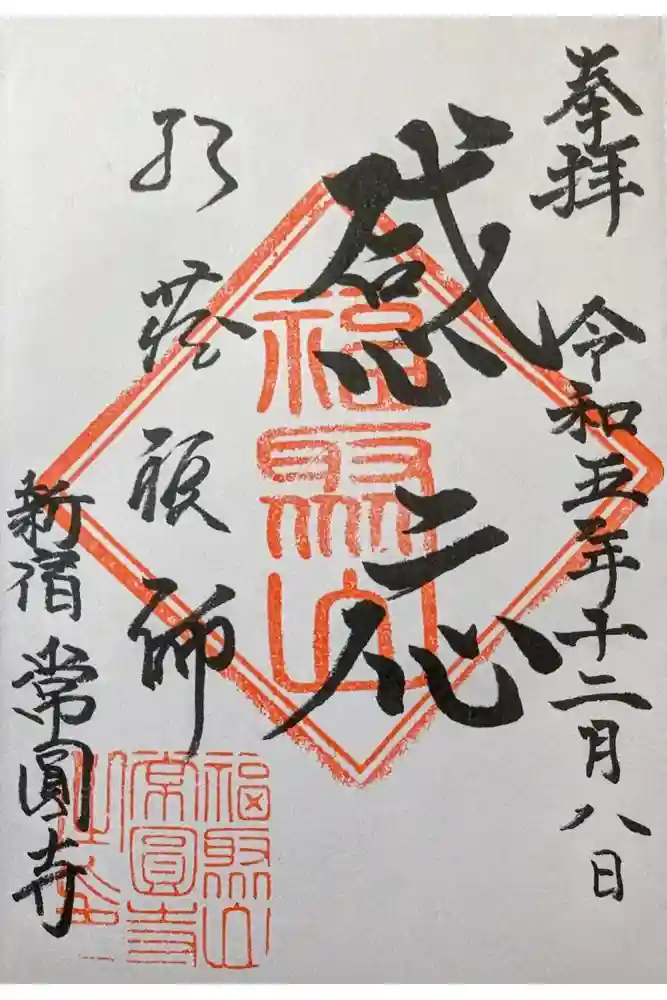 奉拝
令和五年十二月八日
感応
祖師
新宿 常圓寺
福聚山
福聚山
常圓寺